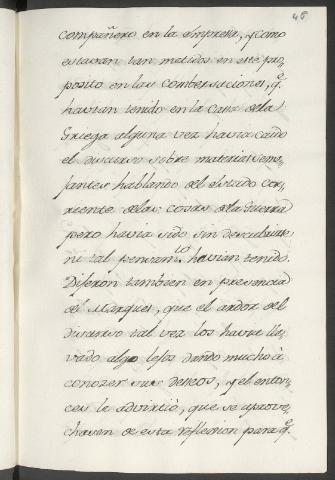 45
compañero en la Empresa, y como
estavan tan metidos en este pro-
posito en las combersaciones, q.e
havian tenido en la Casa de la
Griega alguna vez havia caido
el discurso sobre materias seme-
jantes hablando del estado cor-
riente de las cosas de la Guerra
pero havia sido sin descubrirse
ni tal pensam.to havian tenido.
Dijeron tambien en presencia
del Marques, que el ardor del
discurso tal vez los havia lle-
vado algo lejos dando mucho à
conozer sus deseos, y el enton-
ces le advirtió, que se aprove-
chasen de esta reflection para q.e